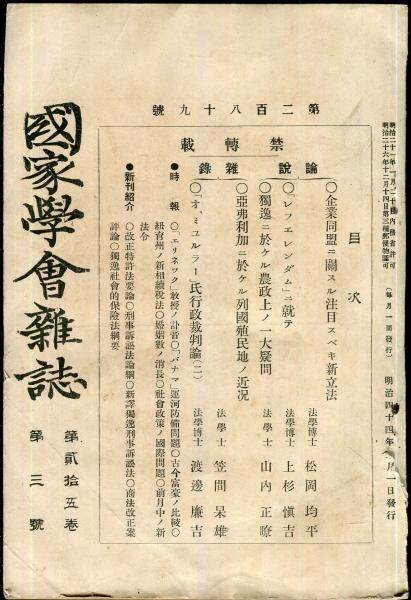 明治二十六年十二月十四日第三種郵便物認可
(每月一回發行)
明治四十四年 月一日發行
第二百八十九號
禁轉載
目次
論說
○企業同盟ニ關スル注目スベキ新立法
法學博士 松岡均平
○「レフエレンダム」ニ就テ
法學博士 上杉愼吉
○獨逸ニ於ケル農政上ノ一大疑問
法學士 山内正瞭
雜錄
○亞弗利加ニ於ケル列國殖民地ノ近況
法學士 笠間杲雄
○「オ、ミユルラー」氏行政裁判論(二)
法學博士 渡邊廉吉
●時報
○「エリネツク」敎授ノ訃音○「パナマ」運河防備問題○古今富豪ノ比較○
紐育州ノ新相續稅法○婚姻數ノ消長○社會政策ノ國際問題○前月中ノ新
法令
●新刊紹介
○改正特許法要論○刑事訴訟法論綱○新譯獨逸刑事訴訟法○商法改正案
評論○獨逸社會的保險法綱要
國家學會雜誌
第貳拾五卷
第三號